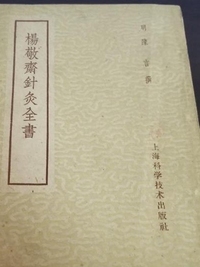 明 陳 言 撰
上海科学技术出版社
楊敬齋針灸全書